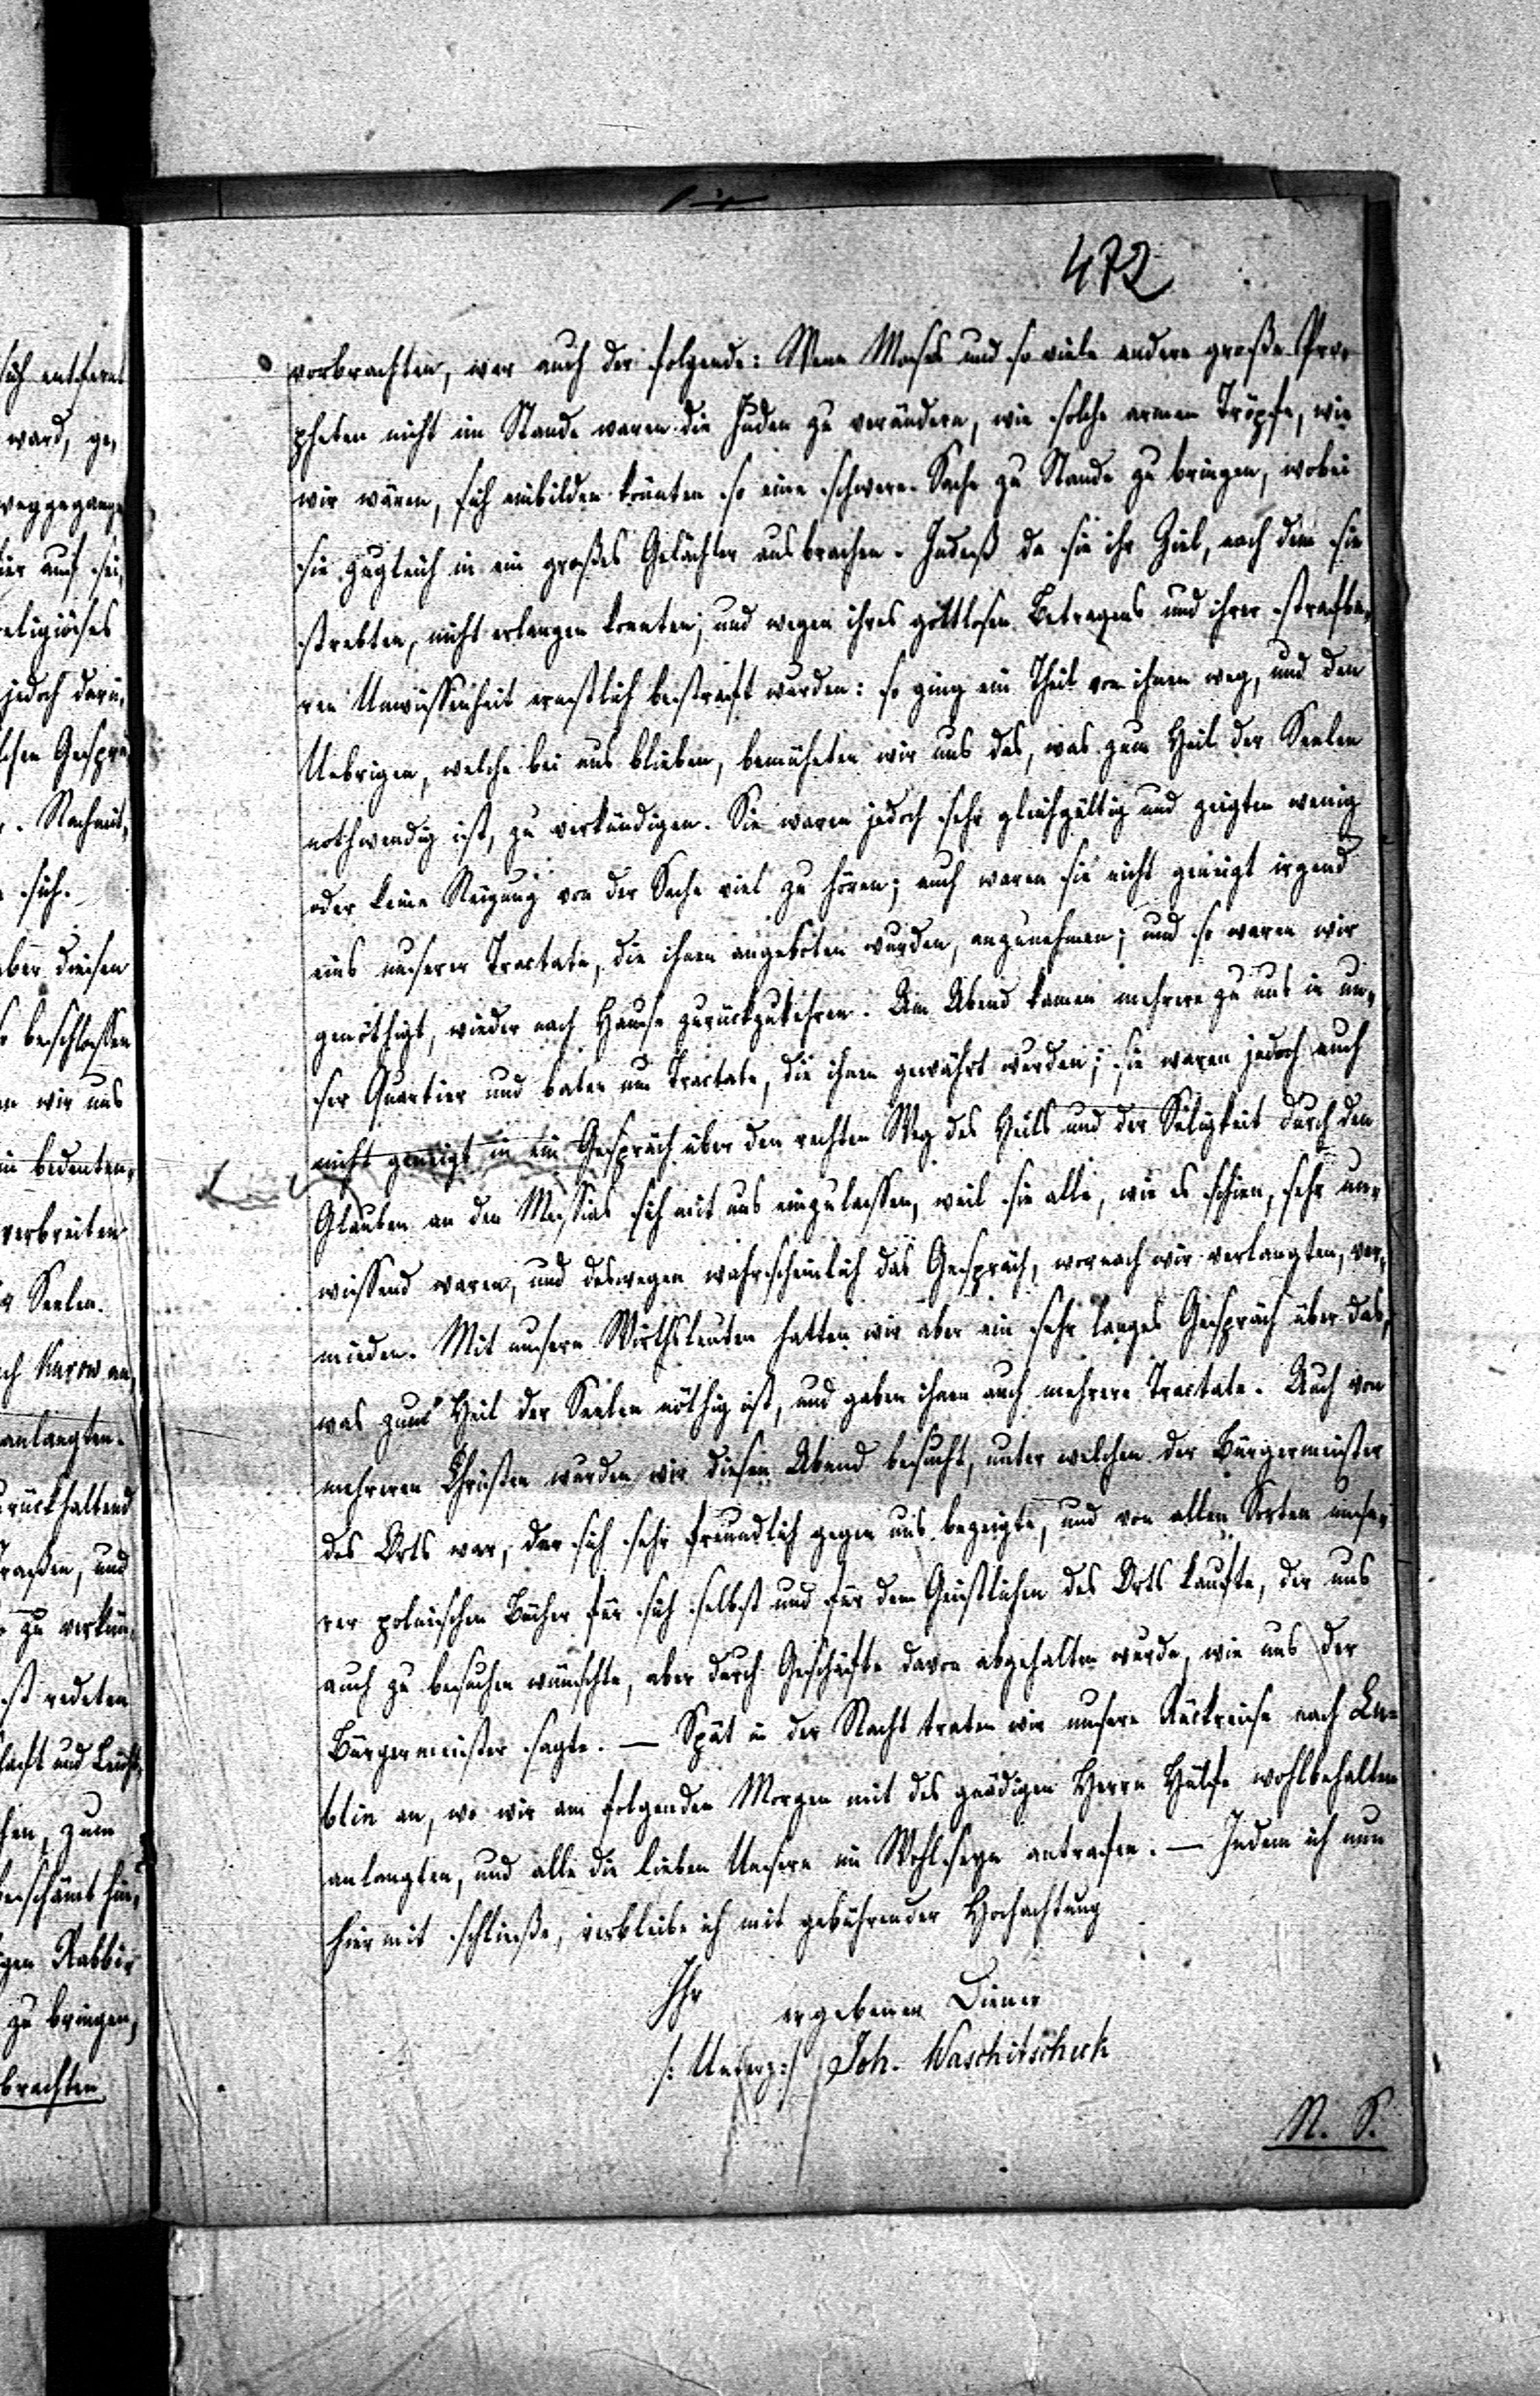 472
vorbrachten, war auch der folgende: Wenn Moses und so viele andere große Pro-
pheten nicht im Stande waren die Juden zu verändern, wie solche armen Tröpfe, wie
wir wären, sich einbilden könnten so eine schwere Sache zu Stande zu bringen, wobei
sie zugleich in ein großes Gelächter ausbrachen. Indeß da sie ihr Ziel, nach dem sie
strebten, nicht erlangen konnten, und wegen ihres gottlosen Betragens und ihrer strafba-
ren Unwissenheit ernstlich bestraft wurden: so ging ein Theil von ihnen weg, und den
Uebrigen, welche bei uns blieben, bemüheten wir uns das, was zum Heil der Seelen
nothwendig ist, zu verkündigen. Sie waren jedoch sehr gleichgültig und zeigten wenig
oder keine Neigung von der Sache viel zu hören; auch waren sie nicht geneigt irgend
eins unserer Tractate, die ihnen angeboten wurden, anzunehmen; und so waren wir
genöthigt, wieder nach Hause zurückzukehren. Am Abend kamen mehrere zu uns in un-
ser Quartier und baten um Tractate, die ihnen gewährt wurden; sie waren jedoch auch
nicht geneigt in ein Gespräch über den rechten Weg des Heils und der Seligkeit durch den
Glauben an den Messias sich mit uns einzulassen, weil sie alle, wie es schien, sehr un-
wissend waren, und deswegen wahrscheinlich das Gespräch, wornach wir verlangten, ver-
mieden. Mit unsern Wirthsleuten hatten wir aber ein sehr langes Gespräch über das,
was zum Heil der Seelen nöthig ist, und gaben ihnen auch mehrere Tractate. Auch von
mehreren Christen wurden wir diesen Abend besucht, unter welchen der Bürgermeister
des Orts war, der sich sehr freundlich gegen uns bezeigte, und von allen Sorten unse-
rer polnischen Bücher für sich selbst und für den Geistlichen des Orts kaufte, der uns
auch zu besuchen wünschte, aber durch Geschäfte davon abgehalten wurde, wie uns der
Bürgermeister sagte. — Spät in der Nacht traten wir unsere Rückreise nach Lu-
blin an, wo wir am folgenden Morgen mit des gnädigen Herrn Hülfe wohlbehalten
anlangten, und alle die lieben Unsern im Wohlseyn antrafen. — Indem ich nun
hiermit schließe, verbleibe ich mit gebührender Hochachtung
Ihr ergebener Diener
/: Unterz:/ Joh. Waschitscheck
N. S.